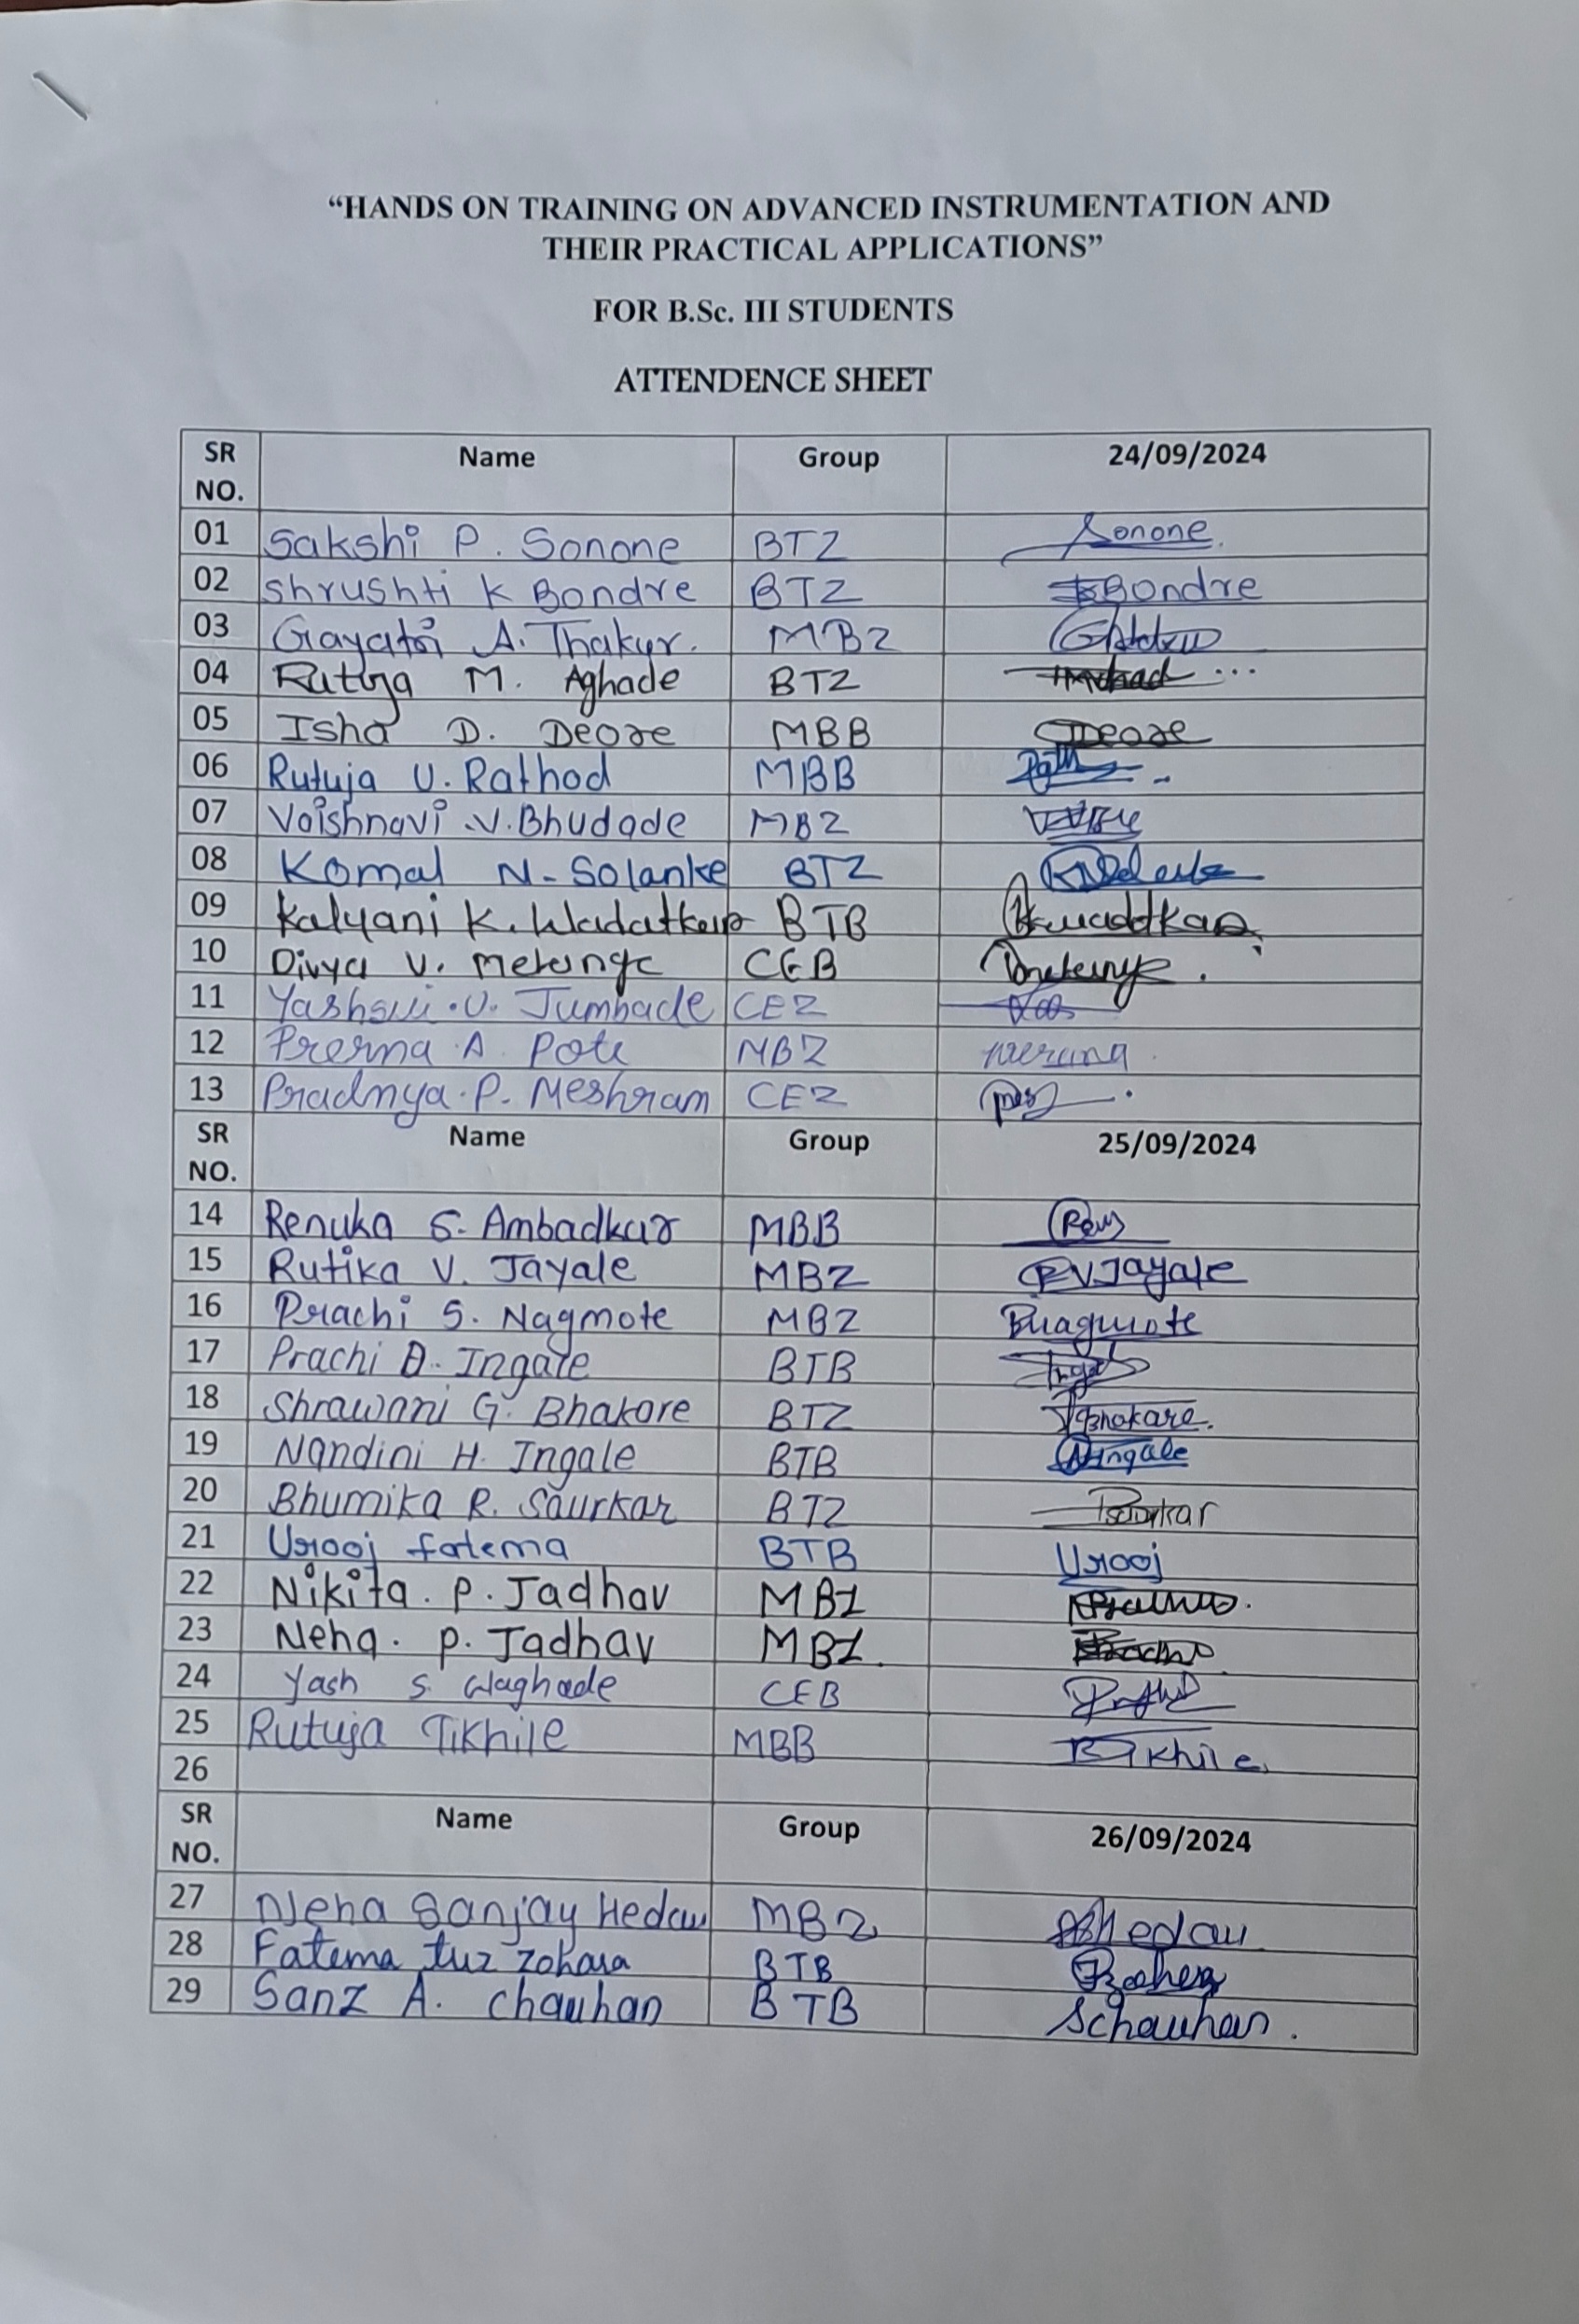 “HANDS ON TRAINING ON ADVANCED INSTRUMENTATION AND
THEIR PRACTICAL APPLICATIONS”
FOR B.Sc. III STUDENTS
ATTENDENCE SHEET
SR NO. Name Group 24/09/2024
01 Sakshi P. Sonone BTZ Sonone
02 Shrushti K Bondre BTZ Bondre
03 Gayatri A. Thakur. MBZ
04 Rutuja M. Aghade BTZ
05 Isha D. Deore MBB Deore
06 Rutuja U. Rathod MBB
07 Vaishnavi .V. Bhudade MBZ
08 Komal N. Solanke BTZ
09 Kalyani K. Wadatkar BTB
10 Divya V. CEB
11 CEZ
12 Prerna A. Pote MBZ
13 Pradnya. P. Meshram CEZ
SR NO. Name Group 25/09/2024
14 Renuka S. Ambadkar MBB
15 Rutika V. Jayale MBZ RVJayale
16 Prachi S. Nagmote MBZ
17 Prachi D. Ingale BTB
18 Shrawani G. Bhakare BTZ Bhakare.
19 Nandini H. Ingale BTB Ningale
20 Bhumika R. Saurkar BTZ
21 Urooj fatema BTB Urooj
22 Nikita. P. Jadhav MBZ
23 Neha. P. Jadhav MBZ.
24 Yash S. Waghade CEB
25 Rutuja Tikhile MBB
26
SR NO. Name Group 26/09/2024
27 Neha Sanjay Hedau MBZ Hedau
28 Fatema tuz zohara BTB
29 Sanz A. Chauhan BTB SChauhan.